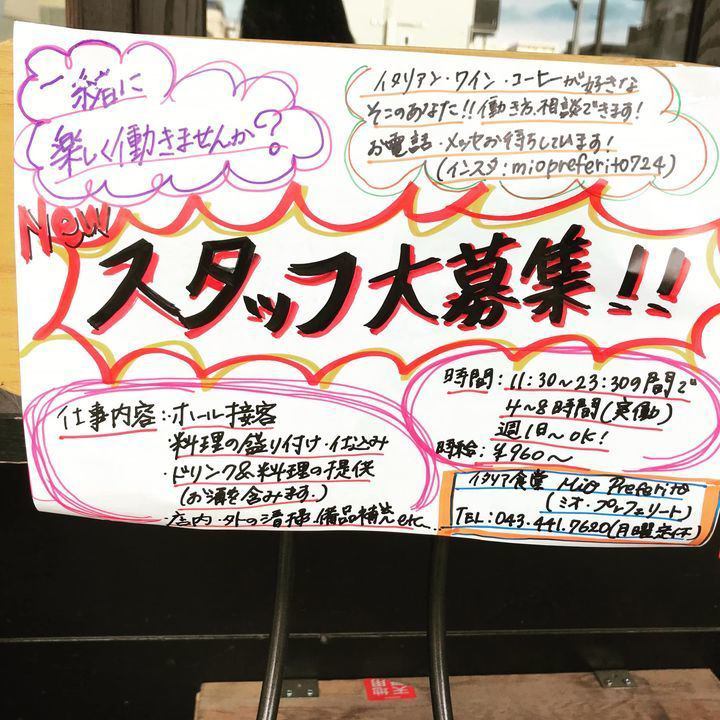 一緒に
楽しく働きませんか?
イタリアン・ワイン・コーヒーが好きな
そこのあなた!!働き方、相談できます!
お電話・メッセお待ちしています!
(インスタ:miopreferito724)
New
スタッフ大募集!!
仕事内容:・ホール接客
・料理の盛り付け・仕込み
・ドリンク&料理の提供
(お酒を含みます。)
・店内・外の清掃、備品補充etc...
時間:11:30~23:30の間で
4~8時間(実働)
週1日~OK!
時給:¥960~
イタリア食堂 Mio Preferito
(ミオ・プレフェリート)
TEL:043.441.7620(月曜定休)